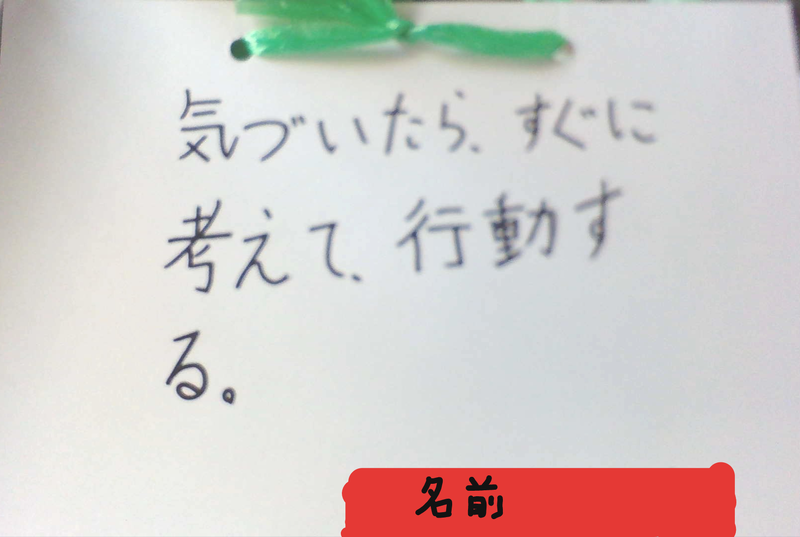 気づいたら、すぐに
考えて、行動す
る。
名前